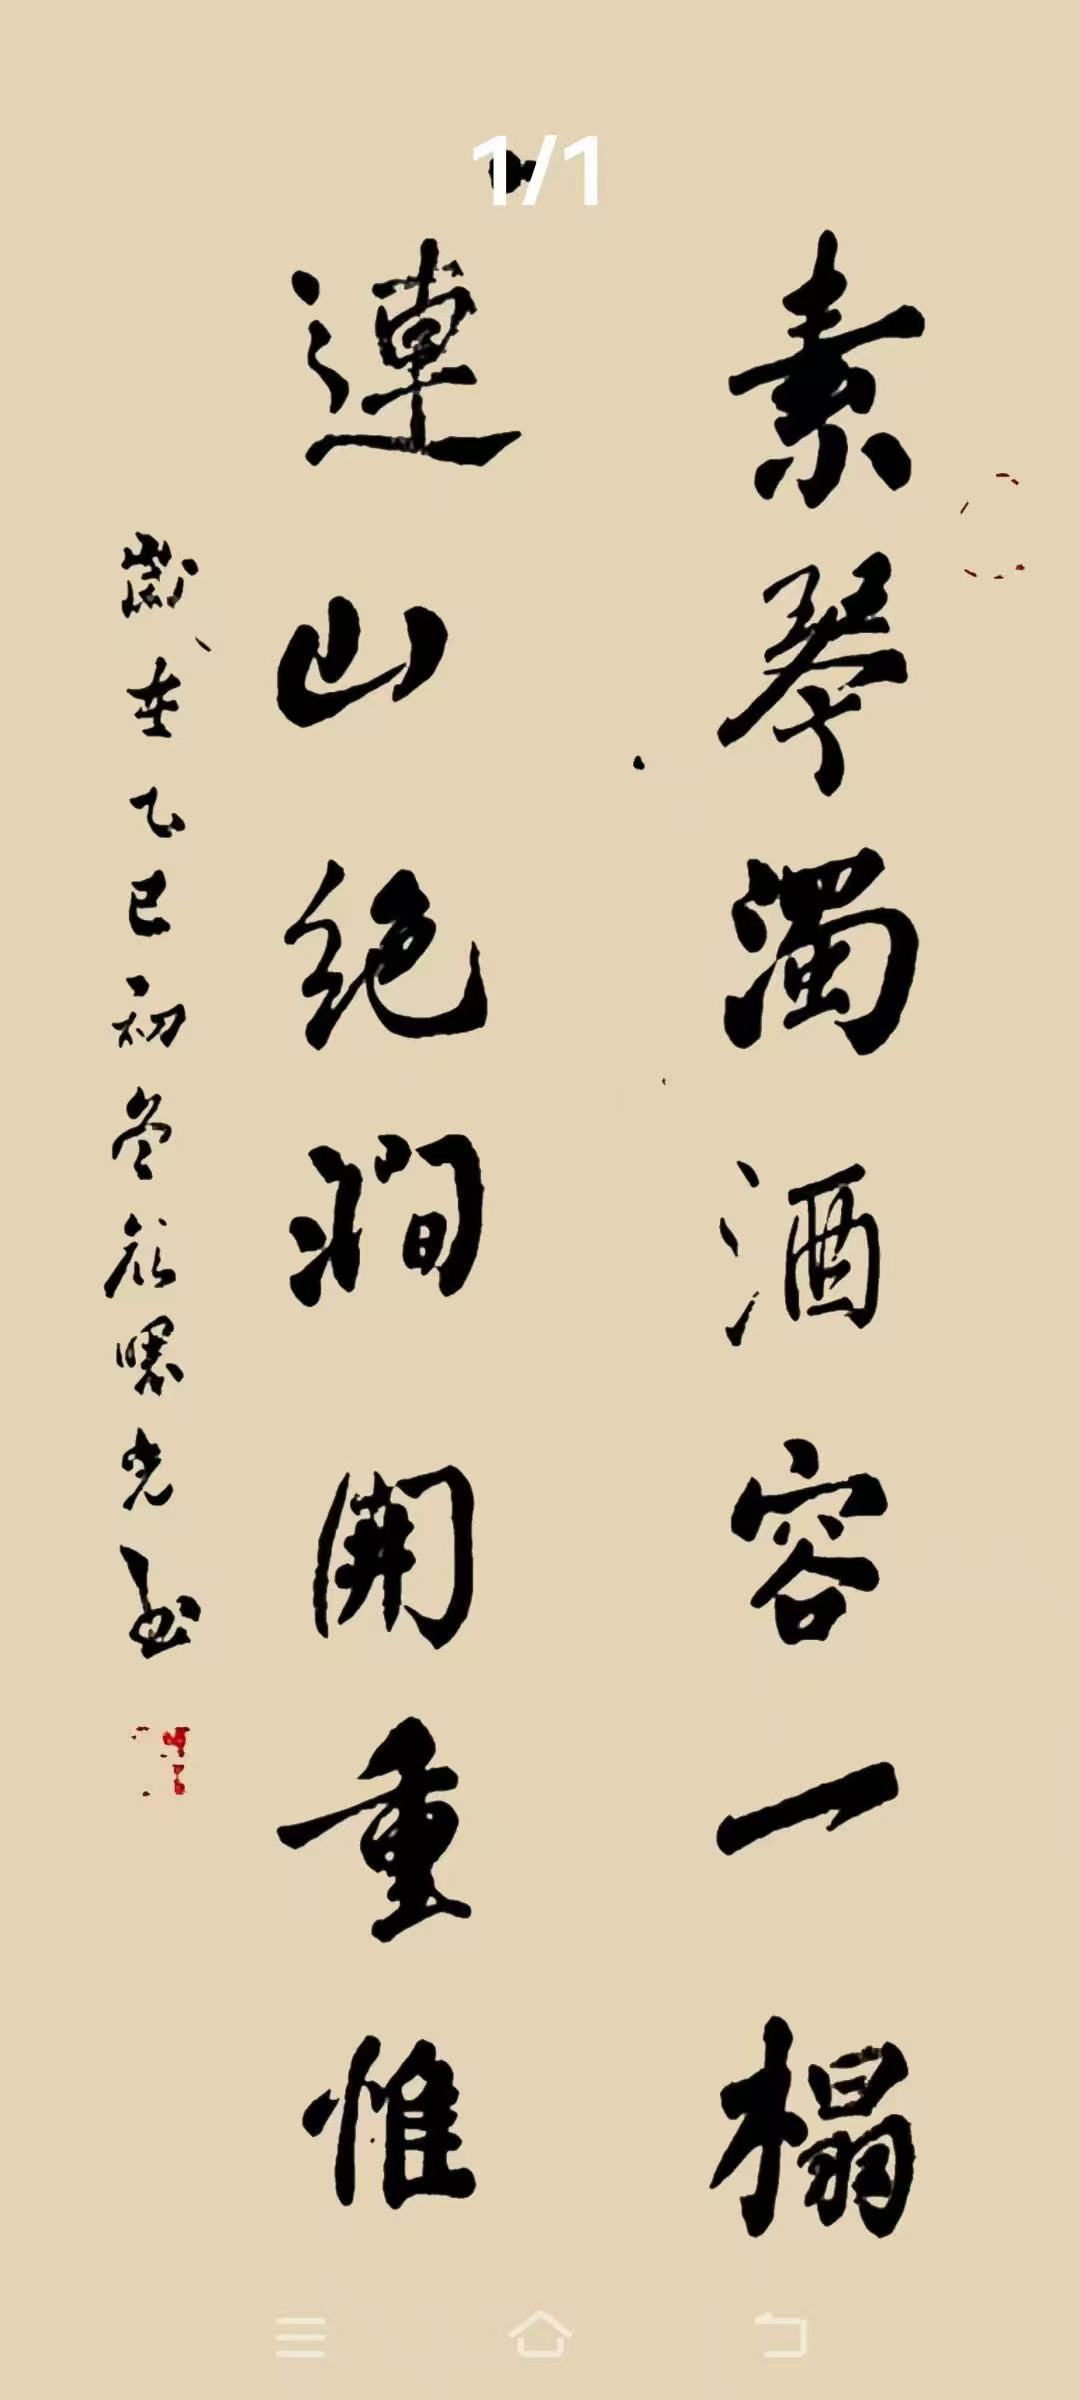 1/1
素琴濁酒容一榻
連山绝澗開重惟
歲在乙巳初冬
曙光